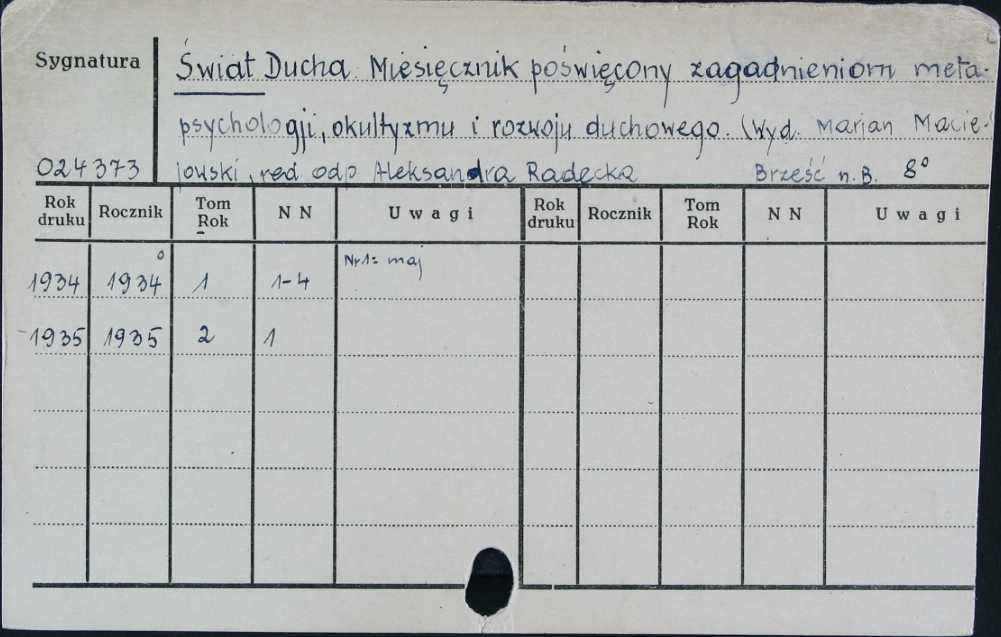 Sygnatura
Świat Ducha. Miesięcznik poświęcony zagadnieniom meta-
psychologji, okultyzmu i rozwoju duchowego. (Wyd. Marian Macie-
024373 jowski, red odp Aleksandra Radecka Brześć n.B. 8°
Rok druku Rocznik Tom Rok N N Uwagi Rok druku Rocznik Tom Rok N N Uwagi
1934 1934° 1 1-4 Nr 1: maj
1935 1935 2 1